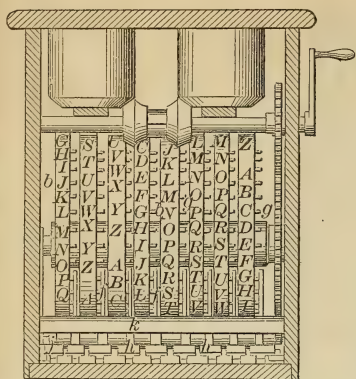 b
GHIJKLMNOPQ
STUVWXYZ
UVWXYZ ABC
CDEFGHIJKL
JKLMNOPQRST
LMNOPQRSTUV
MNOPQRSTUVW
Z ABCDEFGHI
g
k
j
h